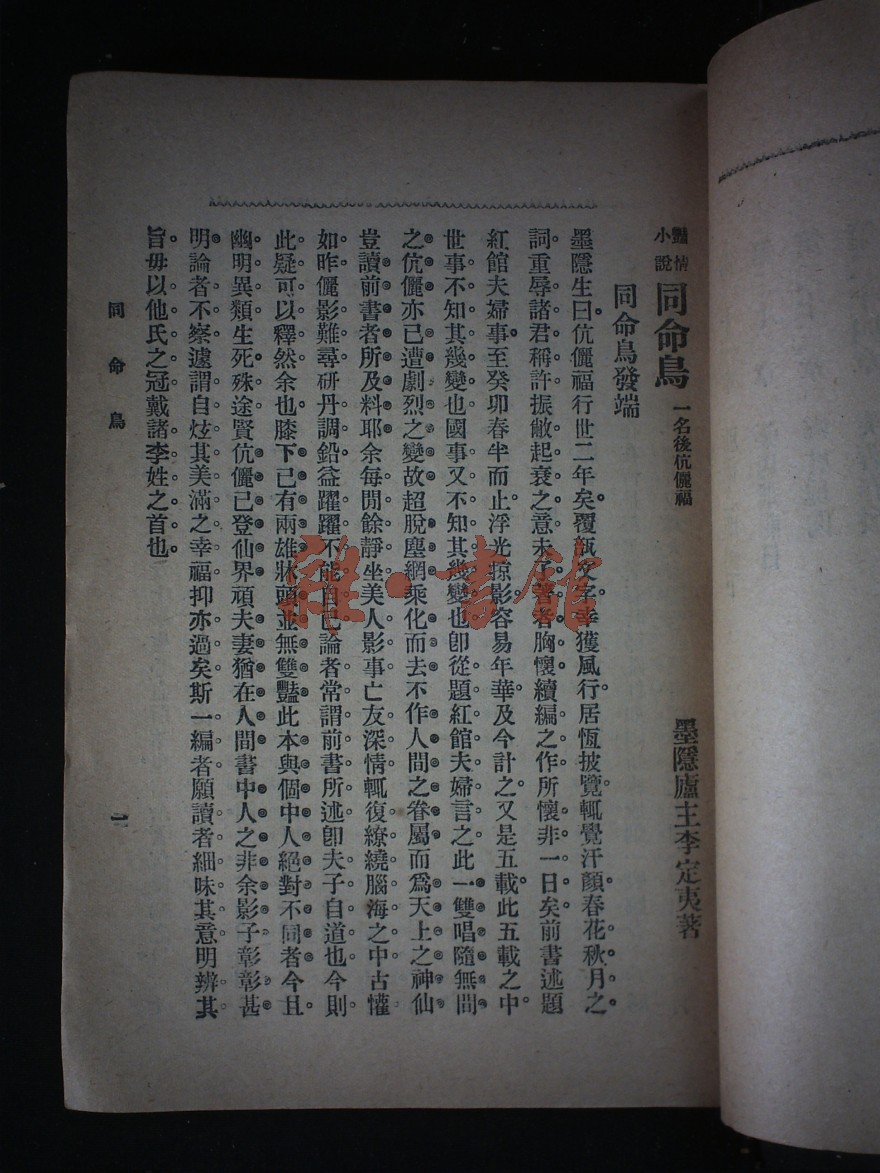 豔情小說 同命鳥 一名後伉儷福 墨隱廬主李定夷著
同命鳥發端
墨隱生曰伉儷福行世二年矣。覆瓿文字。幸獲風行。居恆披覽。輒覺汗顏。春花秋月之
詞。重辱諸君稱許。振敝起衰之意。未了著者胸懷。續編之作。所懷非一日矣。前書述題
紅館夫婦事。至癸卯春半而止。浮光掠影。容易年華。及今計之。又是五載。此五載之中。
世事不知其幾變也。國事又不知其幾變也。卽從題紅館夫婦言之。此一雙唱隨無間
之伉儷。亦已遭劇烈之變故。超脫塵網。乘化而去。不作人間之眷屬。而爲天上之神仙。
豈讀前書者所及料耶。余每閒餘靜坐。美人影事。亡友深情。輒復繚繞腦海之中。古懽
如昨。儷影難尋。研丹調鉛。益躍躍不能自已。論者常謂前書所述。卽夫子自道也。今則
此疑可以釋然。余也膝下已有兩雄。牀頭並無雙豔。此本與個中人絕對不同者。今且
幽明異類。生死殊途。賢伉儷已登仙界。頑夫妻猶在人間。書中人之非余影子。彰彰甚
明。論者不察。遽謂自炫其美滿之幸福。抑亦過矣。斯一編者。願讀者細味其意。明辨其
旨。毋以他氏之冠。戴諸李姓之首也。
同命鳥
一
雜·書館